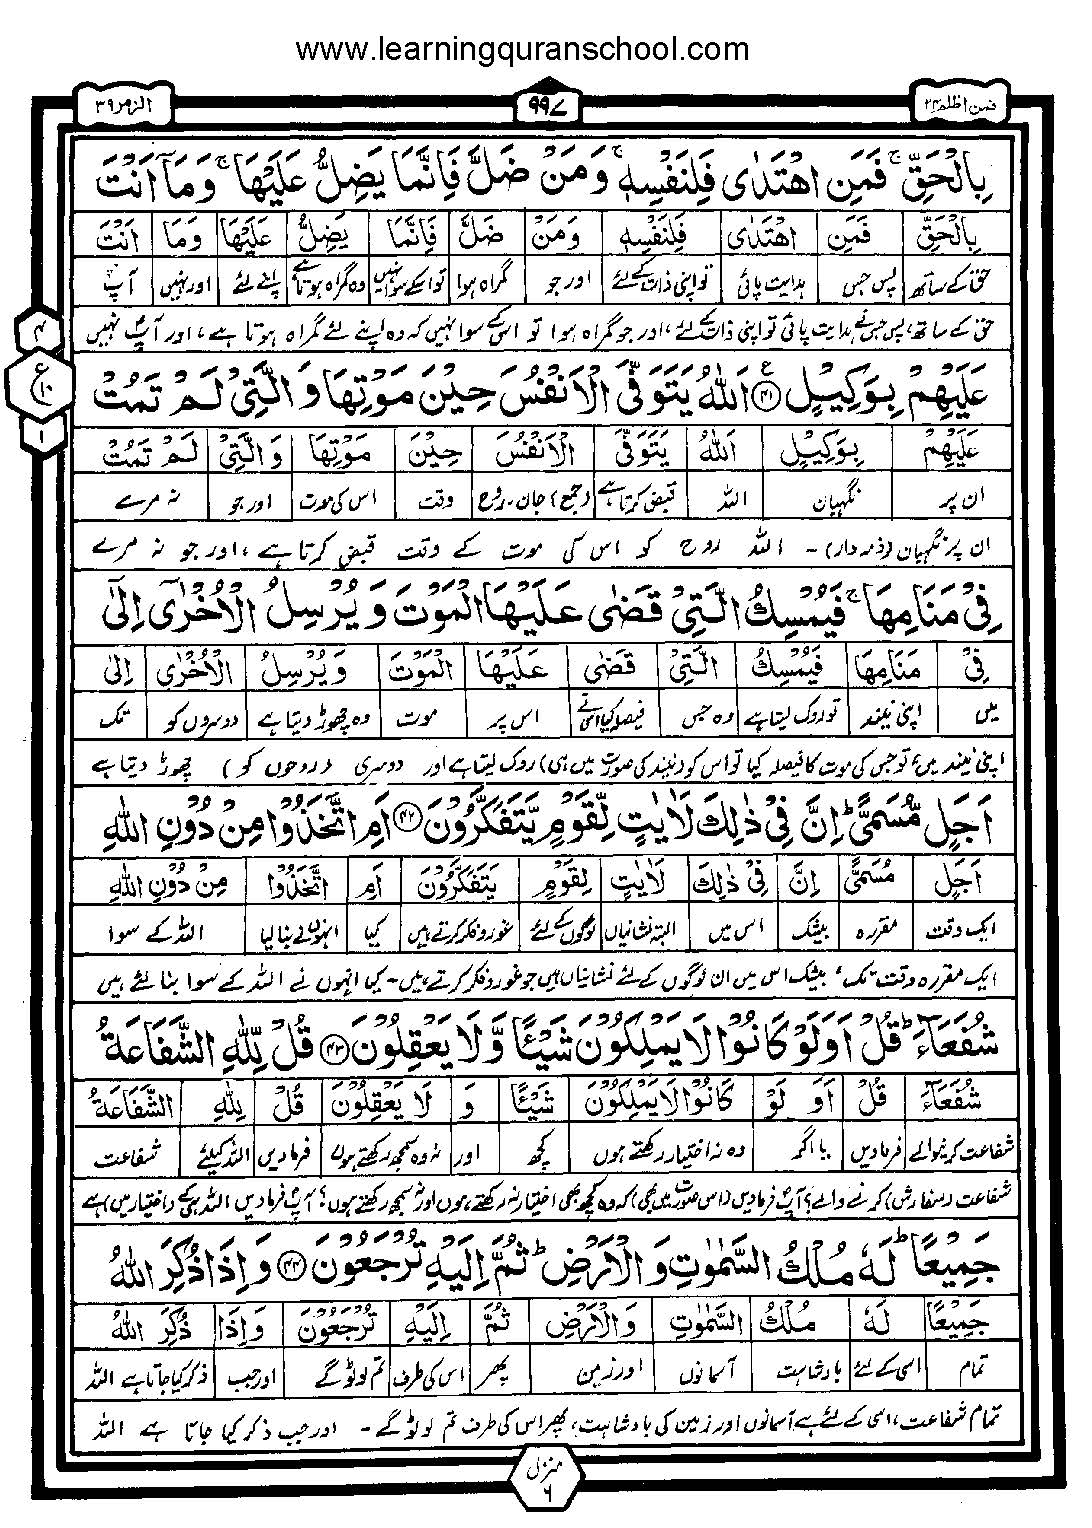 www.learningquranschool.com
فمن اظلم ۲۴
۹۹۷
الزمر ۳۹
بِالْحَقِّ ۚ فَمَنِ اهْتَدٰى فَلِنَفْسِهٖ ۚ وَمَنْ ضَلَّ فَاِنَّمَا يَضِلُّ عَلَيْهَا ۚ وَمَآ اَنْتَ
بِالْحَقِّ فَمَنِ اهْتَدٰى فَلِنَفْسِهٖ وَمَنْ ضَلَّ فَاِنَّمَا يَضِلُّ عَلَيْهَا وَمَا اَنْتَ
حق کے ساتھ پس جس ہدایت پائی تو اپنی ذات کے لئے اور جو گمراہ ہوا تو اسکے سوا نہیں وہ گمراہ ہوتا ہے اپنے لئے اور نہیں آپ
حق کے ساتھ، پس جس نے ہدایت پائی تو اپنی ذات کے لئے، اور جو گمراہ ہوا تو اس کے سوا نہیں کہ وہ اپنے لئے گمراہ ہوتا ہے، اور آپ نہیں
۴
ع
۱۰
۱
عَلَيْهِمْ بِوَكِيْلٍ ۴۱ ع اَللّٰهُ يَتَوَفَّى الْاَنْفُسَ حِيْنَ مَوْتِهَا وَالَّتِيْ لَمْ تَمُتْ
عَلَيْهِمْ بِوَكِيْلٍ اَللّٰهُ يَتَوَفَّى الْاَنْفُسَ حِيْنَ مَوْتِهَا وَالَّتِيْ لَمْ تَمُتْ
ان پر نگہبان اللہ قبض کرتا ہے (جمع) جان۔ روح وقت اس کی موت اور جو نہ مرے
ان پر نگہبان (ذمہ دار) ۔ اللہ روح کو اس کی موت کے وقت قبض کرتا ہے، اور جو نہ مرے
فِيْ مَنَامِهَا ۚ فَيُمْسِكُ الَّتِيْ قَضٰى عَلَيْهَا الْمَوْتَ وَيُرْسِلُ الْاُخْرٰٓى اِلٰٓى
فِيْ مَنَامِهَا فَيُمْسِكُ الَّتِيْ قَضٰى عَلَيْهَا الْمَوْتَ وَيُرْسِلُ الْاُخْرٰٓى اِلٰى
میں اپنی نیند تو روک لیتا ہے وہ جس فیصلہ کیا اس نے اس پر موت وہ چھوڑ دیتا ہے دوسروں کو تک
اپنی نیند میں، تو جس کی موت کا فیصلہ کیا تو اس کو (نیند کی صورت میں ہی) روک لیتا ہے اور دوسری (روحوں کو) چھوڑ دیتا ہے
اَجَلٍ مُّسَمًّى ؕ اِنَّ فِيْ ذٰلِكَ لَاٰيٰتٍ لِّقَوْمٍ يَّتَفَكَّرُوْنَ ۴۲ اَمِ اتَّخَذُوْا مِنْ دُوْنِ اللّٰهِ
اَجَلٍ مُسَمًّى اِنَّ فِيْ ذٰلِكَ لَاٰيٰتٍ لِقَوْمٍ يَتَفَكَّرُوْنَ اَمِ اتَّخَذُوْا مِنْ دُوْنِ اللّٰهِ
ایک وقت مقررہ بیشک اس میں البتہ نشانیاں لوگوں کے لئے غور و فکر کرتے ہیں کیا انہوں نے بنا لیا اللہ کے سوا
ایک مقررہ وقت تک، بیشک اس میں ان لوگوں کے لئے نشانیاں ہیں جو غور و فکر کرتے ہیں۔ کیا انہوں نے اللہ کے سوا بنا لئے ہیں
شُفَعَآءَ ؕ قُلْ اَوَلَوْ كَانُوْا لَا يَمْلِكُوْنَ شَيْـًٔا وَّلَا يَعْقِلُوْنَ ۴۳ قُلْ لِّلّٰهِ الشَّفَاعَةُ
شُفَعَآءَ قُلْ اَوَ لَوْ كَانُوْا لَا يَمْلِكُوْنَ شَيْـًٔا وَ لَا يَعْقِلُوْنَ قُلْ لِلّٰهِ الشَّفَاعَةُ
شفاعت کرنیوالے فرمادیں یا اگر وہ نہ اختیار رکھتے ہوں کچھ اور نہ وہ سمجھ رکھتے ہوں فرمادیں اللہ کیلئے شفاعت
شفاعت (سفارش) کرنے والے؟ آپ فرمادیں (اس صورت میں بھی) کہ وہ کچھ بھی اختیار نہ رکھتے ہوں اور نہ سمجھ رکھتے ہوں؟ آپ فرمادیں اللہ ہی کے (اختیار میں) ہے
جَمِيْعًا ؕ لَهٗ مُلْكُ السَّمٰوٰتِ وَالْاَرْضِ ؕ ثُمَّ اِلَيْهِ تُرْجَعُوْنَ ۴۴ وَاِذَا ذُكِرَ اللّٰهُ
جَمِيْعًا لَهٗ مُلْكُ السَّمٰوٰتِ وَالْاَرْضِ ثُمَّ اِلَيْهِ تُرْجَعُوْنَ وَاِذَا ذُكِرَ اللّٰهُ
تمام اسی کے لئے بادشاہت آسمانوں اور زمین پھر اس کی طرف تم لوٹو گے اور جب ذکر کیا جاتا ہے اللہ
تمام شفاعت، اسی کے لئے ہے آسمانوں اور زمین کی بادشاہت، پھر اس کی طرف تم لوٹو گے ۔ اور جب ذکر کیا جاتا ہے اللہ
منزل ۶